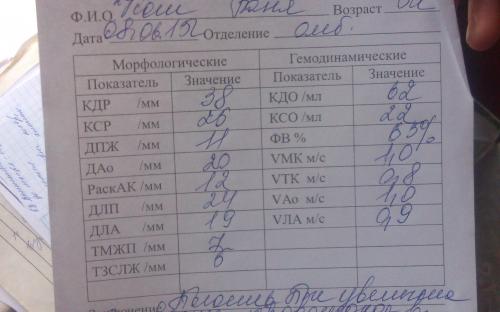 Ф.И.О Таня Возраст
Дата 08.06.15г Отделение амб.
Морфологические Гемодинамические
Показатель Значение Показатель Значение
КДР /мм 38 КДО /мл 62
КСР /мм 26 КСО /мл 22
ДПЖ /мм 11 ФВ % 65%
ДАо /мм 20 VМК м/с 1,0
РаскАК /мм 12 VТК м/с 0,8
ДЛП /мм 24 VАо м/с 1,0
ДЛА /мм 19 VЛА м/с 0,9
ТМЖП /мм 7
ТЗСЛЖ /мм 6
Полость